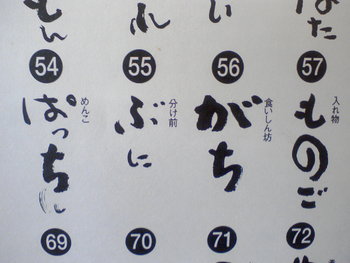 57
56
い
55
れ
54
もん
入れ物
ものご
72
食いしん坊
がち
71
分け前
ぶに
70
めんこ
ぱっち
69